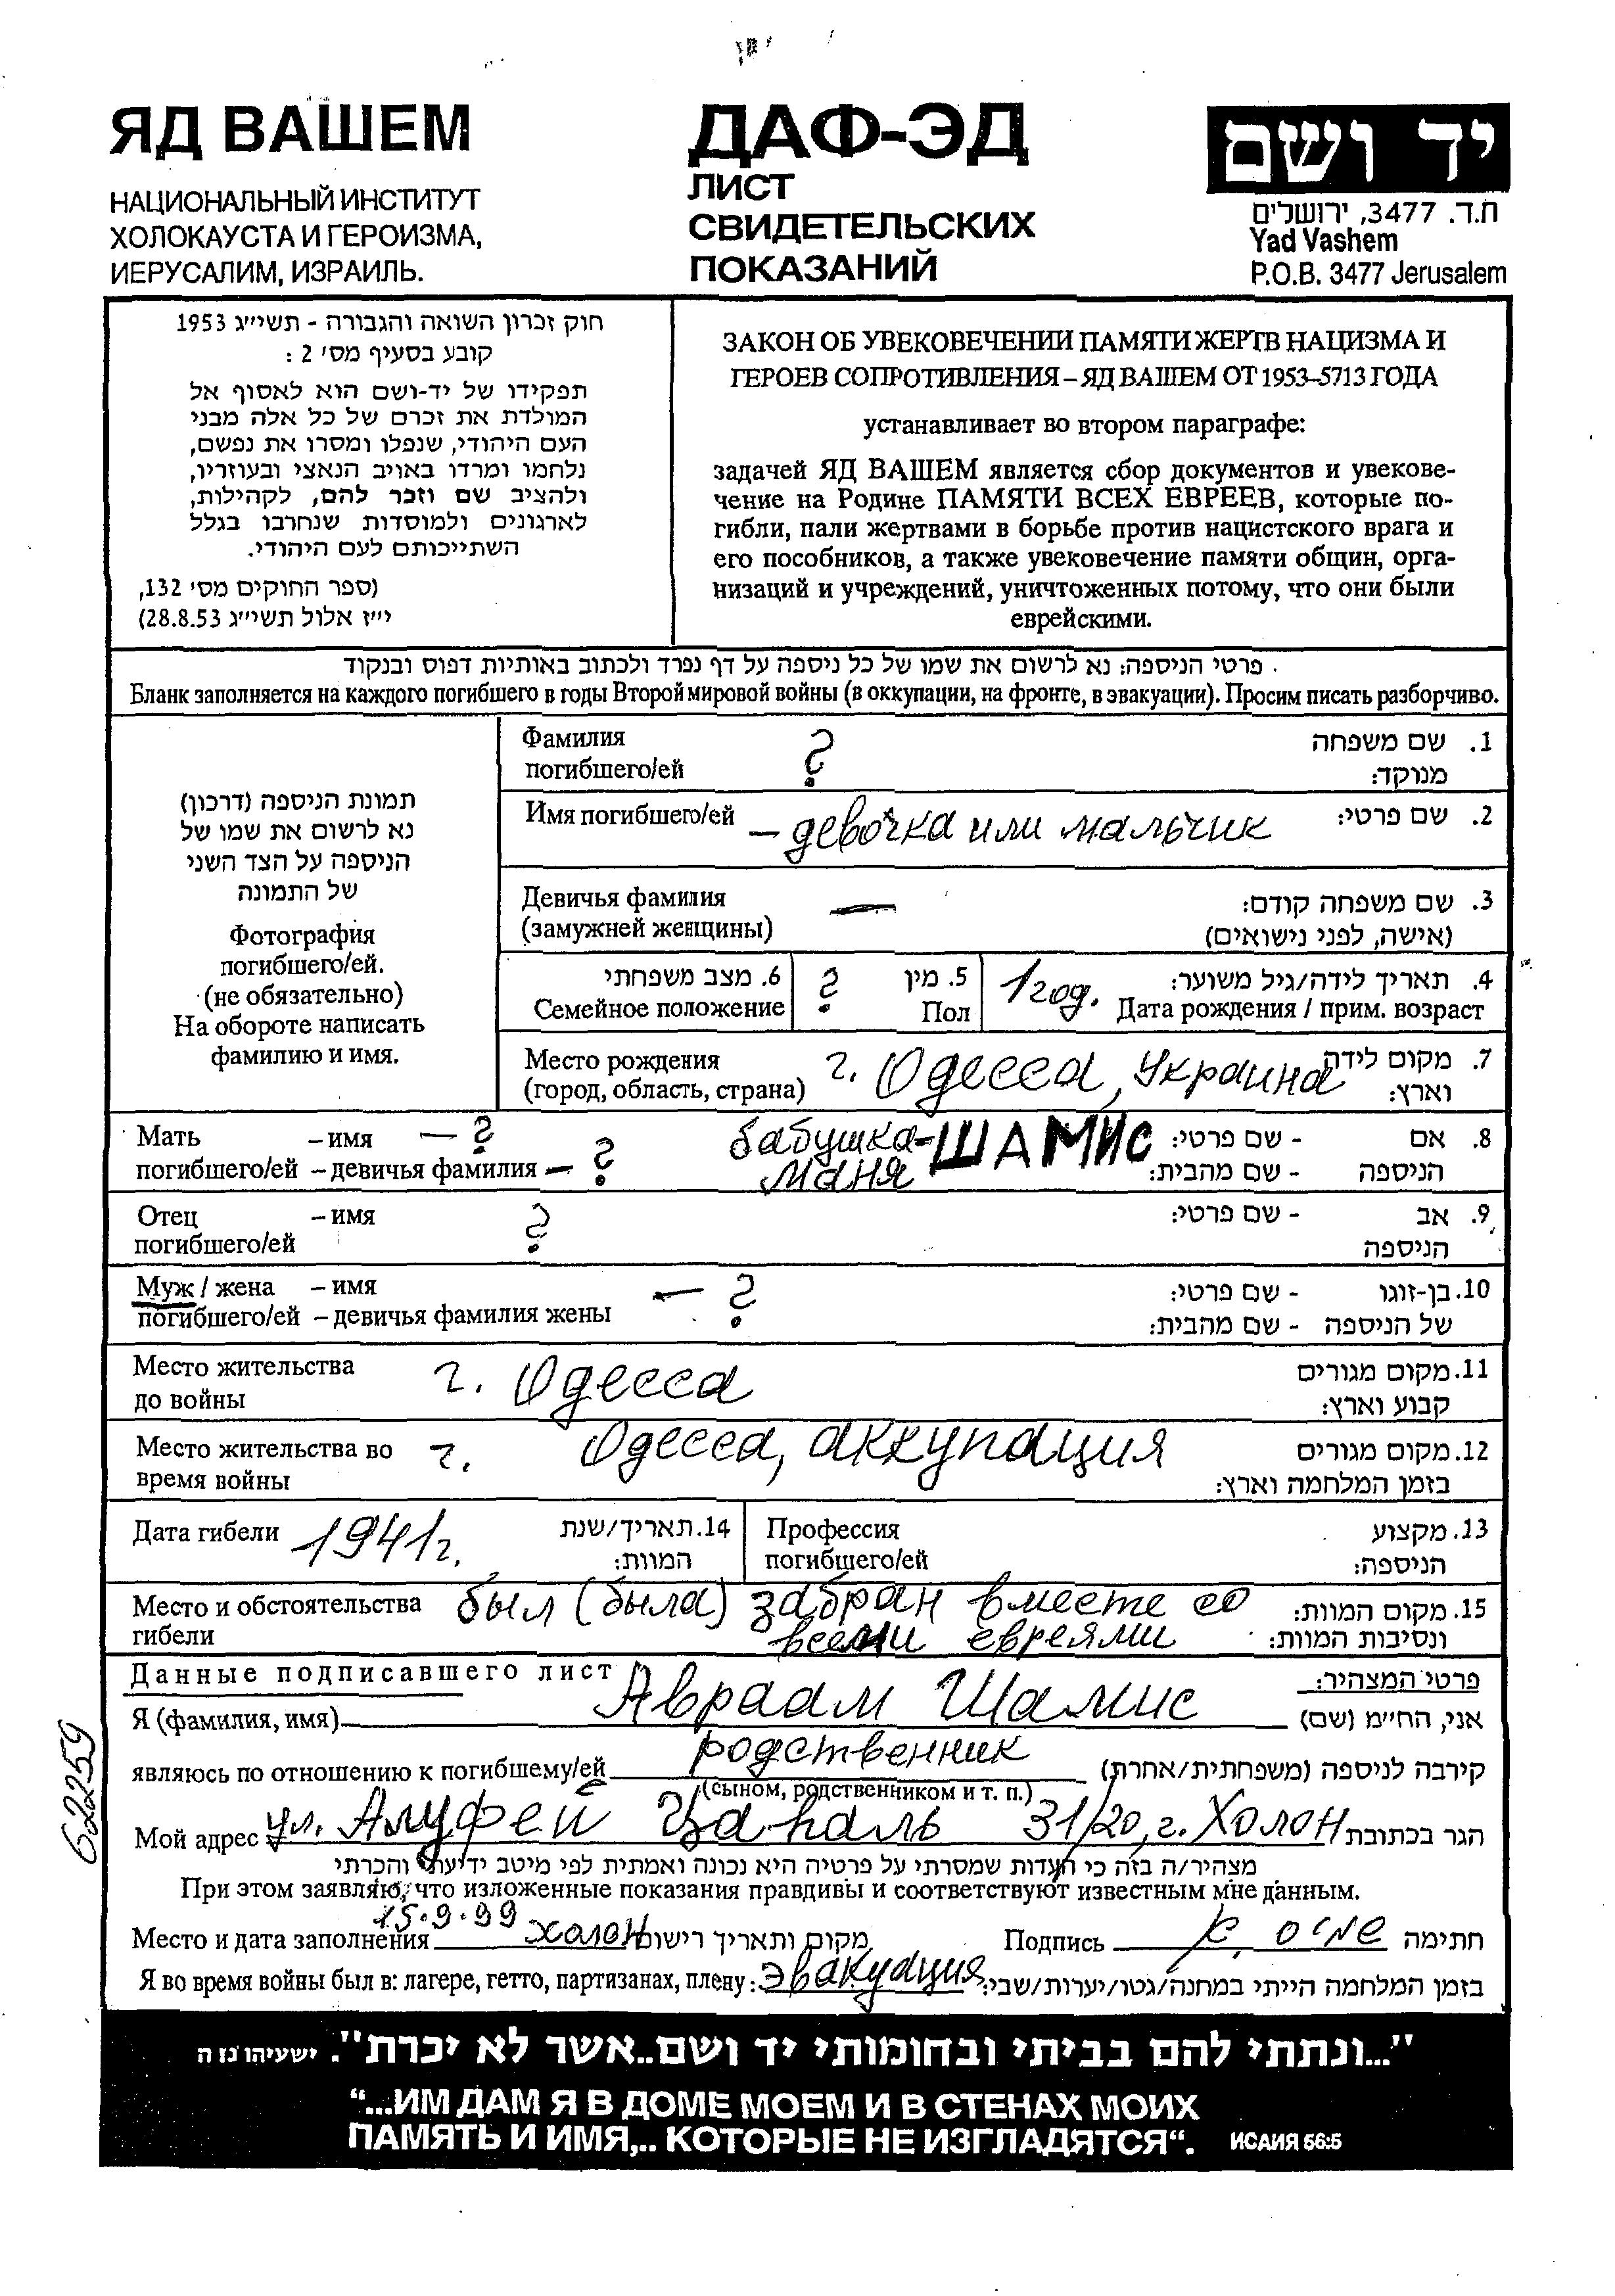 ЯД ВАШЕМ
НАЦИОНАЛЬНЫЙ ИНСТИТУТ
ХОЛОКАУСТА И ГЕРОИЗМА,
ИЕРУСАЛИМ, ИЗРАИЛЬ.
ДАФ-ЭД
ЛИСТ
СВИДЕТЕЛЬСКИХ
ПОКАЗАНИЙ
יד ושם
ת.ד. 3477, ירושלים
Yad Vashem
P.O.B. 3477 Jerusalem
חוק זכרון השואה והגבורה - תשי״ג 1953
קובע בסעיף מס׳ 2 :
תפקידו של יד-ושם הוא לאסוף אל
המולדת את זכרם של כל אלה מבני
העם היהודי, שנפלו ומסרו את נפשם,
נלחמו ומרדו באויב הנאצי ובעוזריו,
ולהציב שם וזכר להם, לקהילות,
לארגונים ולמוסדות שנחרבו בגלל
השתייכותם לעם היהודי.
(ספר החוקים מס׳ 132,
י״ז אלול תשי״ג 28.8.53)
ЗАКОН ОБ УВЕКОВЕЧЕНИИ ПАМЯТИ ЖЕРТВ НАЦИЗМА И
ГЕРОЕВ СОПРОТИВЛЕНИЯ – ЯД ВАШЕМ ОТ 1953–5713 ГОДА
устанавливает во втором параграфе:
задачей ЯД ВАШЕМ является сбор документов и увекове-
чение на Родине ПАМЯТИ ВСЕХ ЕВРЕЕВ, которые по-
гибли, пали жертвами в борьбе против нацистского врага и
его пособников, а также увековечение памяти общин, орга-
низаций и учреждений, уничтоженных потому, что они были
еврейскими.
פרטי הניספה: נא לרשום את שמו של כל ניספה על דף נפרד ולכתוב באותיות דפוס ובנקוד
Бланк заполняется на каждого погибшего в годы Второй мировой войны (в оккупации, на фронте, в эвакуации). Просим писать разборчиво.
תמונת הניספה (דרכון)
נא לרשום את שמו של
הניספה על הצד השני
של התמונה
Фотография
погибшего/ей.
(не обязательно)
На обороте написать
фамилию и имя.
Фамилия ? שם משפחה .1
погибшего/ей מנוקד:
Имя погибшего/ей – девочка или мальчик שם פרטי: .2
Девичья фамилия — שם משפחה קודם: .3
(замужней женщины) (אישה, לפני נישואים)
6. מצב משפחתי ? 5. מין 1 год. תאריך לידה/גיל משוער: .4
Семейное положение Пол Дата рождения / прим. возраст
Место рождения г. Одесса, Украина מקום לידה .7
(город, область, страна) וארץ:
Мать – имя — ? бабушка- ШАМИС - שם פרטי: אם .8
погибшего/ей – девичья фамилия — ? Маня - שם מהבית: הניספה
Отец – имя ? - שם פרטי: אב .9
погибшего/ей הניספה
Муж / жена – имя — ? - שם פרטי: בן-זוגו .10
погибшего/ей – девичья фамилия жены - שם מהבית: של הניספה
Место жительства г. Одесса מקום מגורים .11
до войны קבוע וארץ:
Место жительства во г. Одесса, аккупация מקום מגורים .12
время войны בזמן המלחמה וארץ:
Дата гибели 1941г. 14. תאריך/שנת Профессия מקצוע .13
המוות: погибшего/ей הניספה:
Место и обстоятельства был (была) забран вместе со מקום המוות: .15
гибели всеми евреями ונסיבות המוות:
Данные подписавшего лист פרטי המצהיר:
Я (фамилия, имя) Авраам Шамис אני, החי״מ (שם)
являюсь по отношению к погибшему/ей родственник קירבה לניספה (משפחתית/אחרת)
(сыном, родственником и т. п.)
Мой адрес ул. Алуфей Цаhаль 31/20, г. Холон הגר בכתובת
מצהיר/ה בזה כי העדות שמסרתי על פרטיה היא נכונה ואמתית לפי מיטב ידיעתי והכרתי
При этом заявляю, что изложенные показания правдивы и соответствуют известным мне данным.
15.9.99
Место и дата заполнения Холон מקום ותאריך רישום Подпись חתימה
Я во время войны был в: лагере, гетто, партизанах, плену: эвакуация בזמן המלחמה הייתי במחנה/גטו/יערות/שבי:
62259
"...ונתתי להם בביתי ובחומותי יד ושם..אשר לא יכרת". ישעיהו נז ה
“...ИМ ДАМ Я В ДОМЕ МОЕМ И В СТЕНАХ МОИХ
ПАМЯТЬ И ИМЯ,.. КОТОРЫЕ НЕ ИЗГЛАДЯТСЯ“. ИСАИЯ 56:5